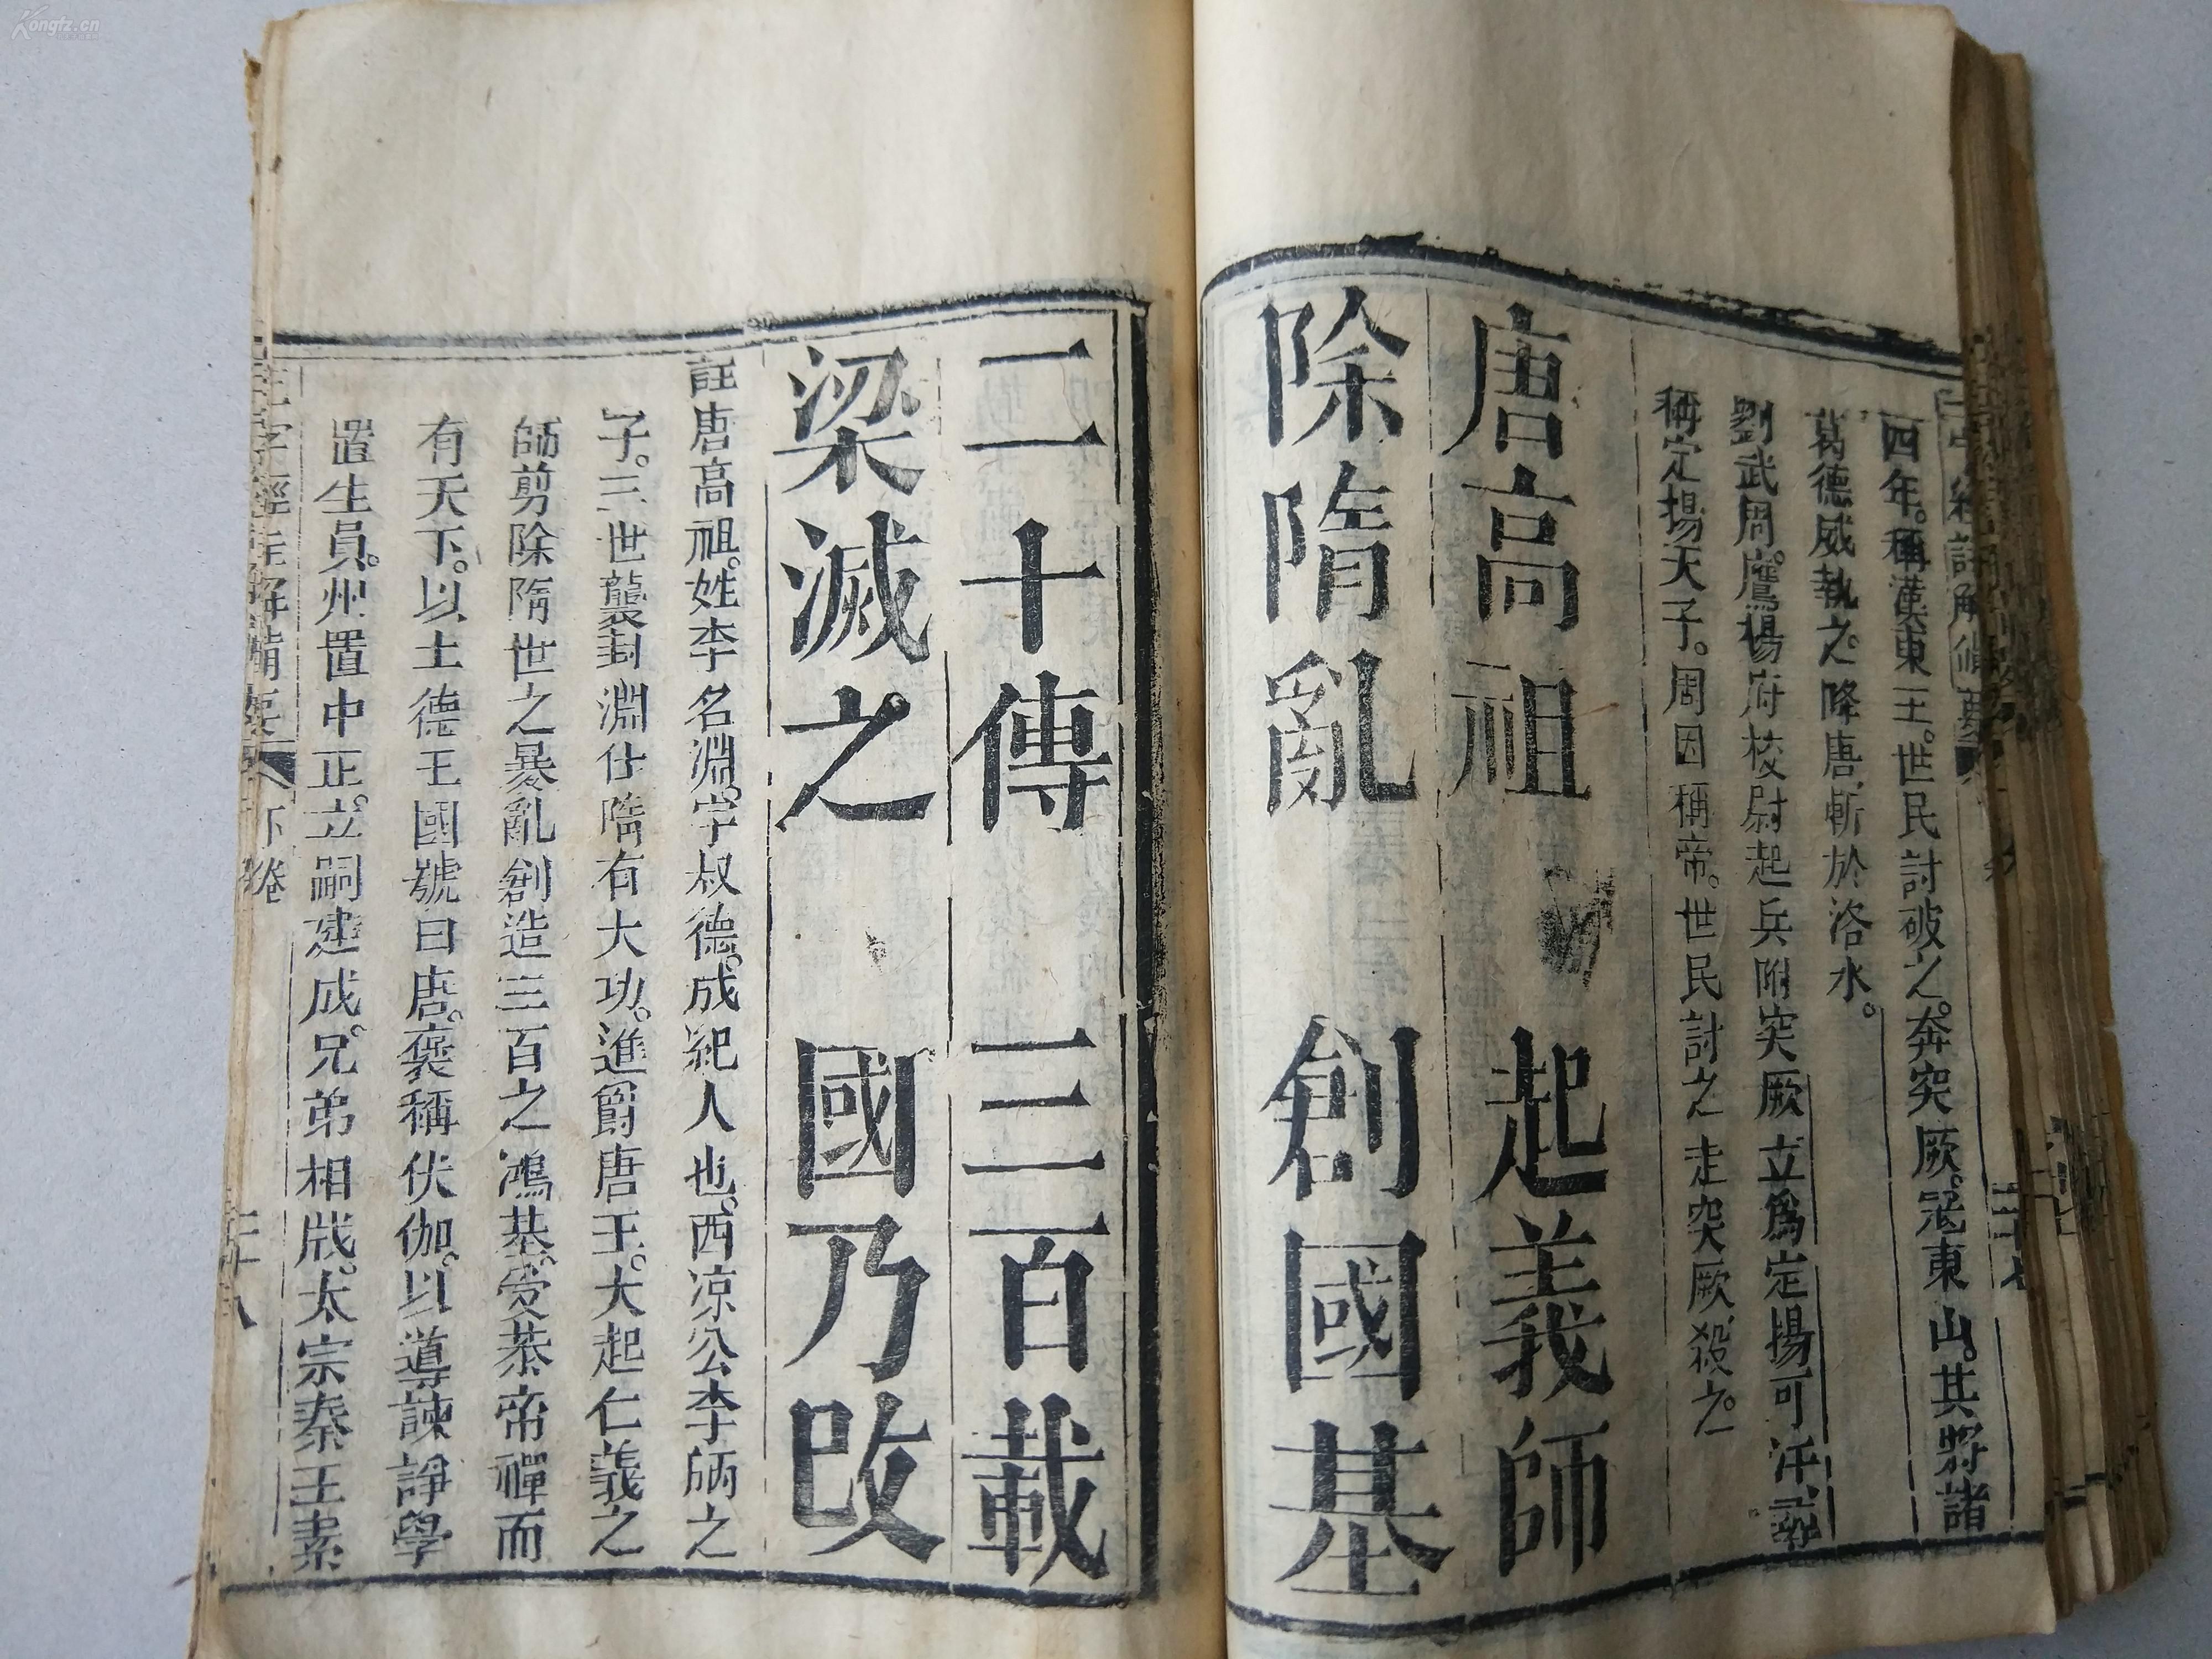 四年。稱漢東王。世民討破之。奔突厥。冦東山。其將諸
葛德威執之。降唐。斬於洛水。
劉武周。鷹揚府校尉起兵附突厥立爲定揚可汗
稱定揚天子。周因稱帝。世民討之走突厥。殺之。
唐高祖 起義師
除隋亂 創國基
二十傳 三百載
梁滅之 國乃改
註唐高祖。姓李名淵。字叔德。成紀人也。西凉公李昞之
子。三世襲封淵仕隋有大功。進爵唐王。大起仁義之
師剪除隋世之暴亂創造三百之鴻基。受恭帝禪而
有天下。以土德王國號曰唐。褒稱伏伽。以導諫諍學
置生員。州置中正。立嗣建成。兄弟相戕。太宗秦王素
三字經註解備要 下卷 二十八
Kongfz.cn